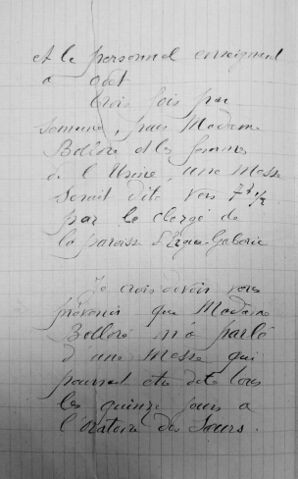 et le personnel enseignant
à Odet
trois fois par
semaine, pour Madame
Bolloré et les femmes
de l'Usine, une messe
serait dite vers 7h 1/2
par le clergé de
la paroisse d'Ergué-Gabéric
Je crois devoir vous
prévenir que Madame
Bolloré m'a parlé
d'une messe qui
pourrait être dite tous
les quinze jours à
l'oratoire des Sœurs.